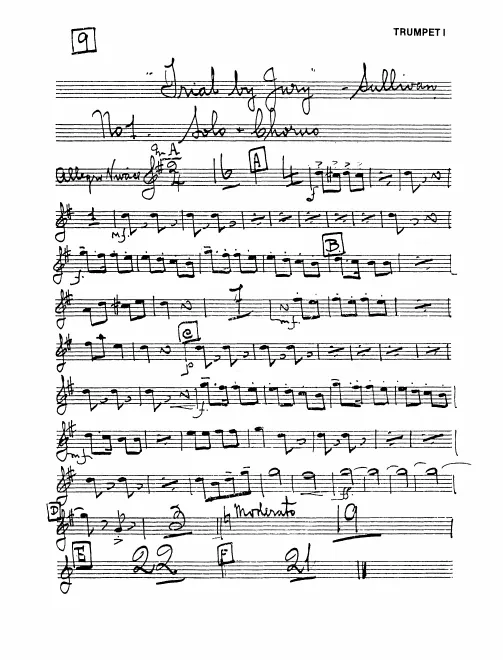 9
TRUMPET I
"Trial by Jury" - Sullivan
No 1. Solo + Chorus
in A
Allegro Vivace 2 4 16 A 4
f
1
mf
B
f
7
mf
C
p
f
mf
ff
D 3 Moderato 19
E 22 F 21